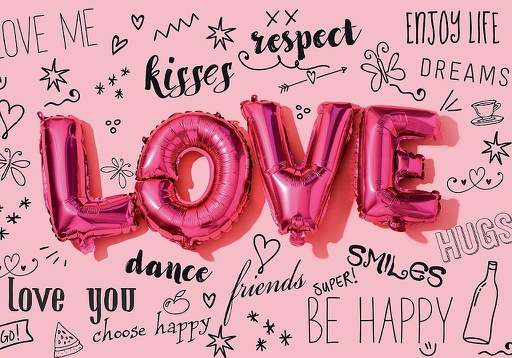 LOVE ME
kisses
respect
ENJOY LIFE
DREAMS
LOVE
HUGS
dance
friends
SUPER!
SMILES
love you
choose happy
BE HAPPY
GO!